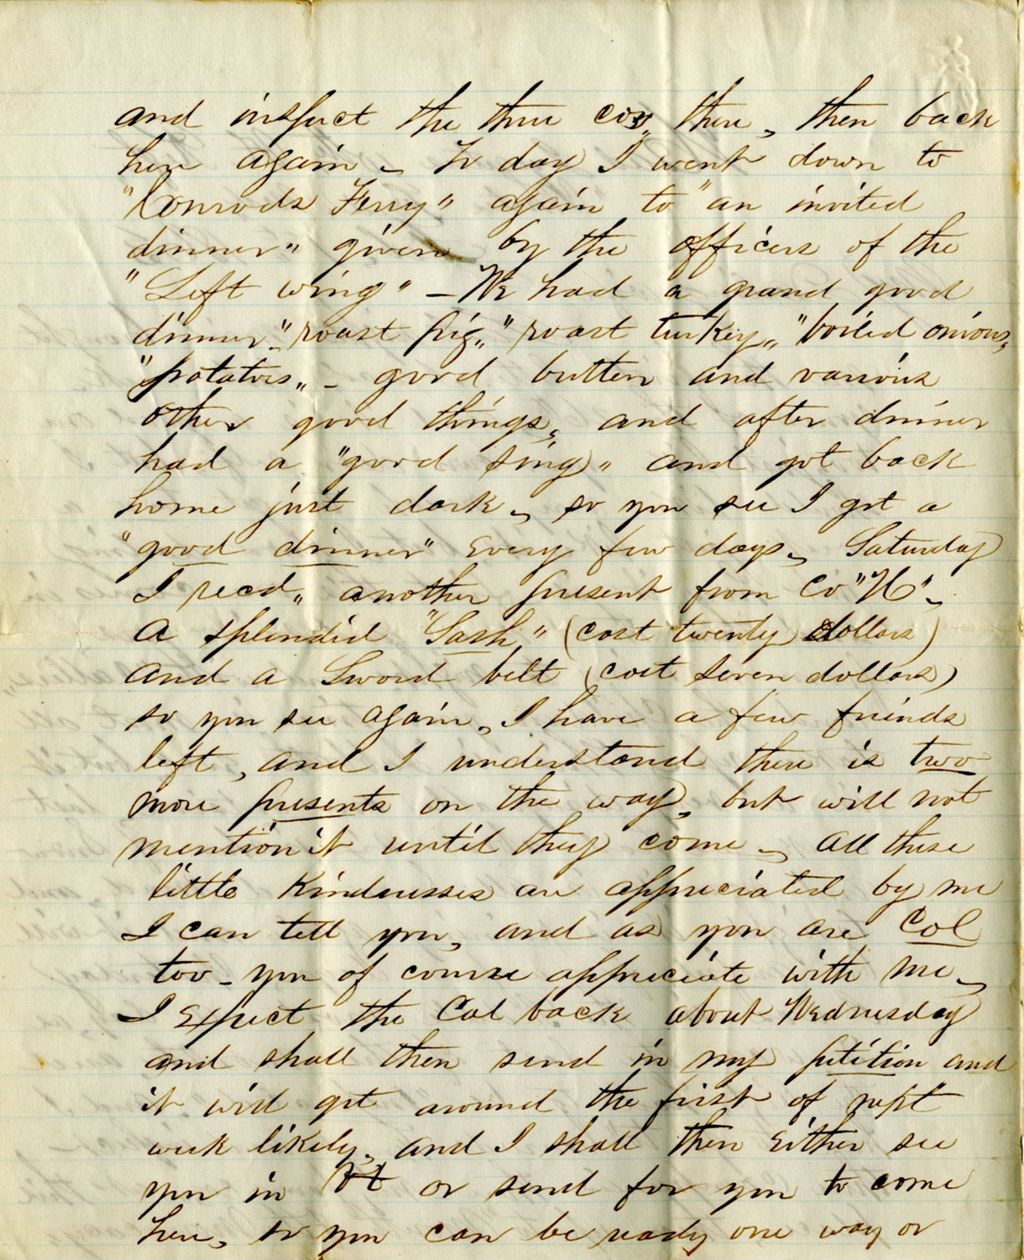 and inspect the three cos, there, then back
here again – To day I went down to
"Conrods Ferry" again to "an invited
dinner" given by the officers of the
"Left wing" – We had a grand good
dinner, "roast pig," "roast turkey," "boiled onions,"
"potatoes," – good butter and various
other good things, and after dinner
had a "good sing" and got back
home just dark – so you see I get a
"good dinner" every few days, Saturday
I recd, another present from Co "H" –
a splendid "Sash" (cost twenty dollars)
and a Sword belt (cost seven dollars)
so you see again, I have a few friends
left, and I understand there is two
more presents on the way, but will not
mention it until they come – all these
little kindnesses are appreciated by me
I can tell you, and as you are Col
too – you of course appreciate with me –
I expect the Col back about Wednesday
and shall then send in my petition and
it will get around the first of next
week likely, and I shall then either see
you in Vt or send for you to come
here, so you can be ready one way or